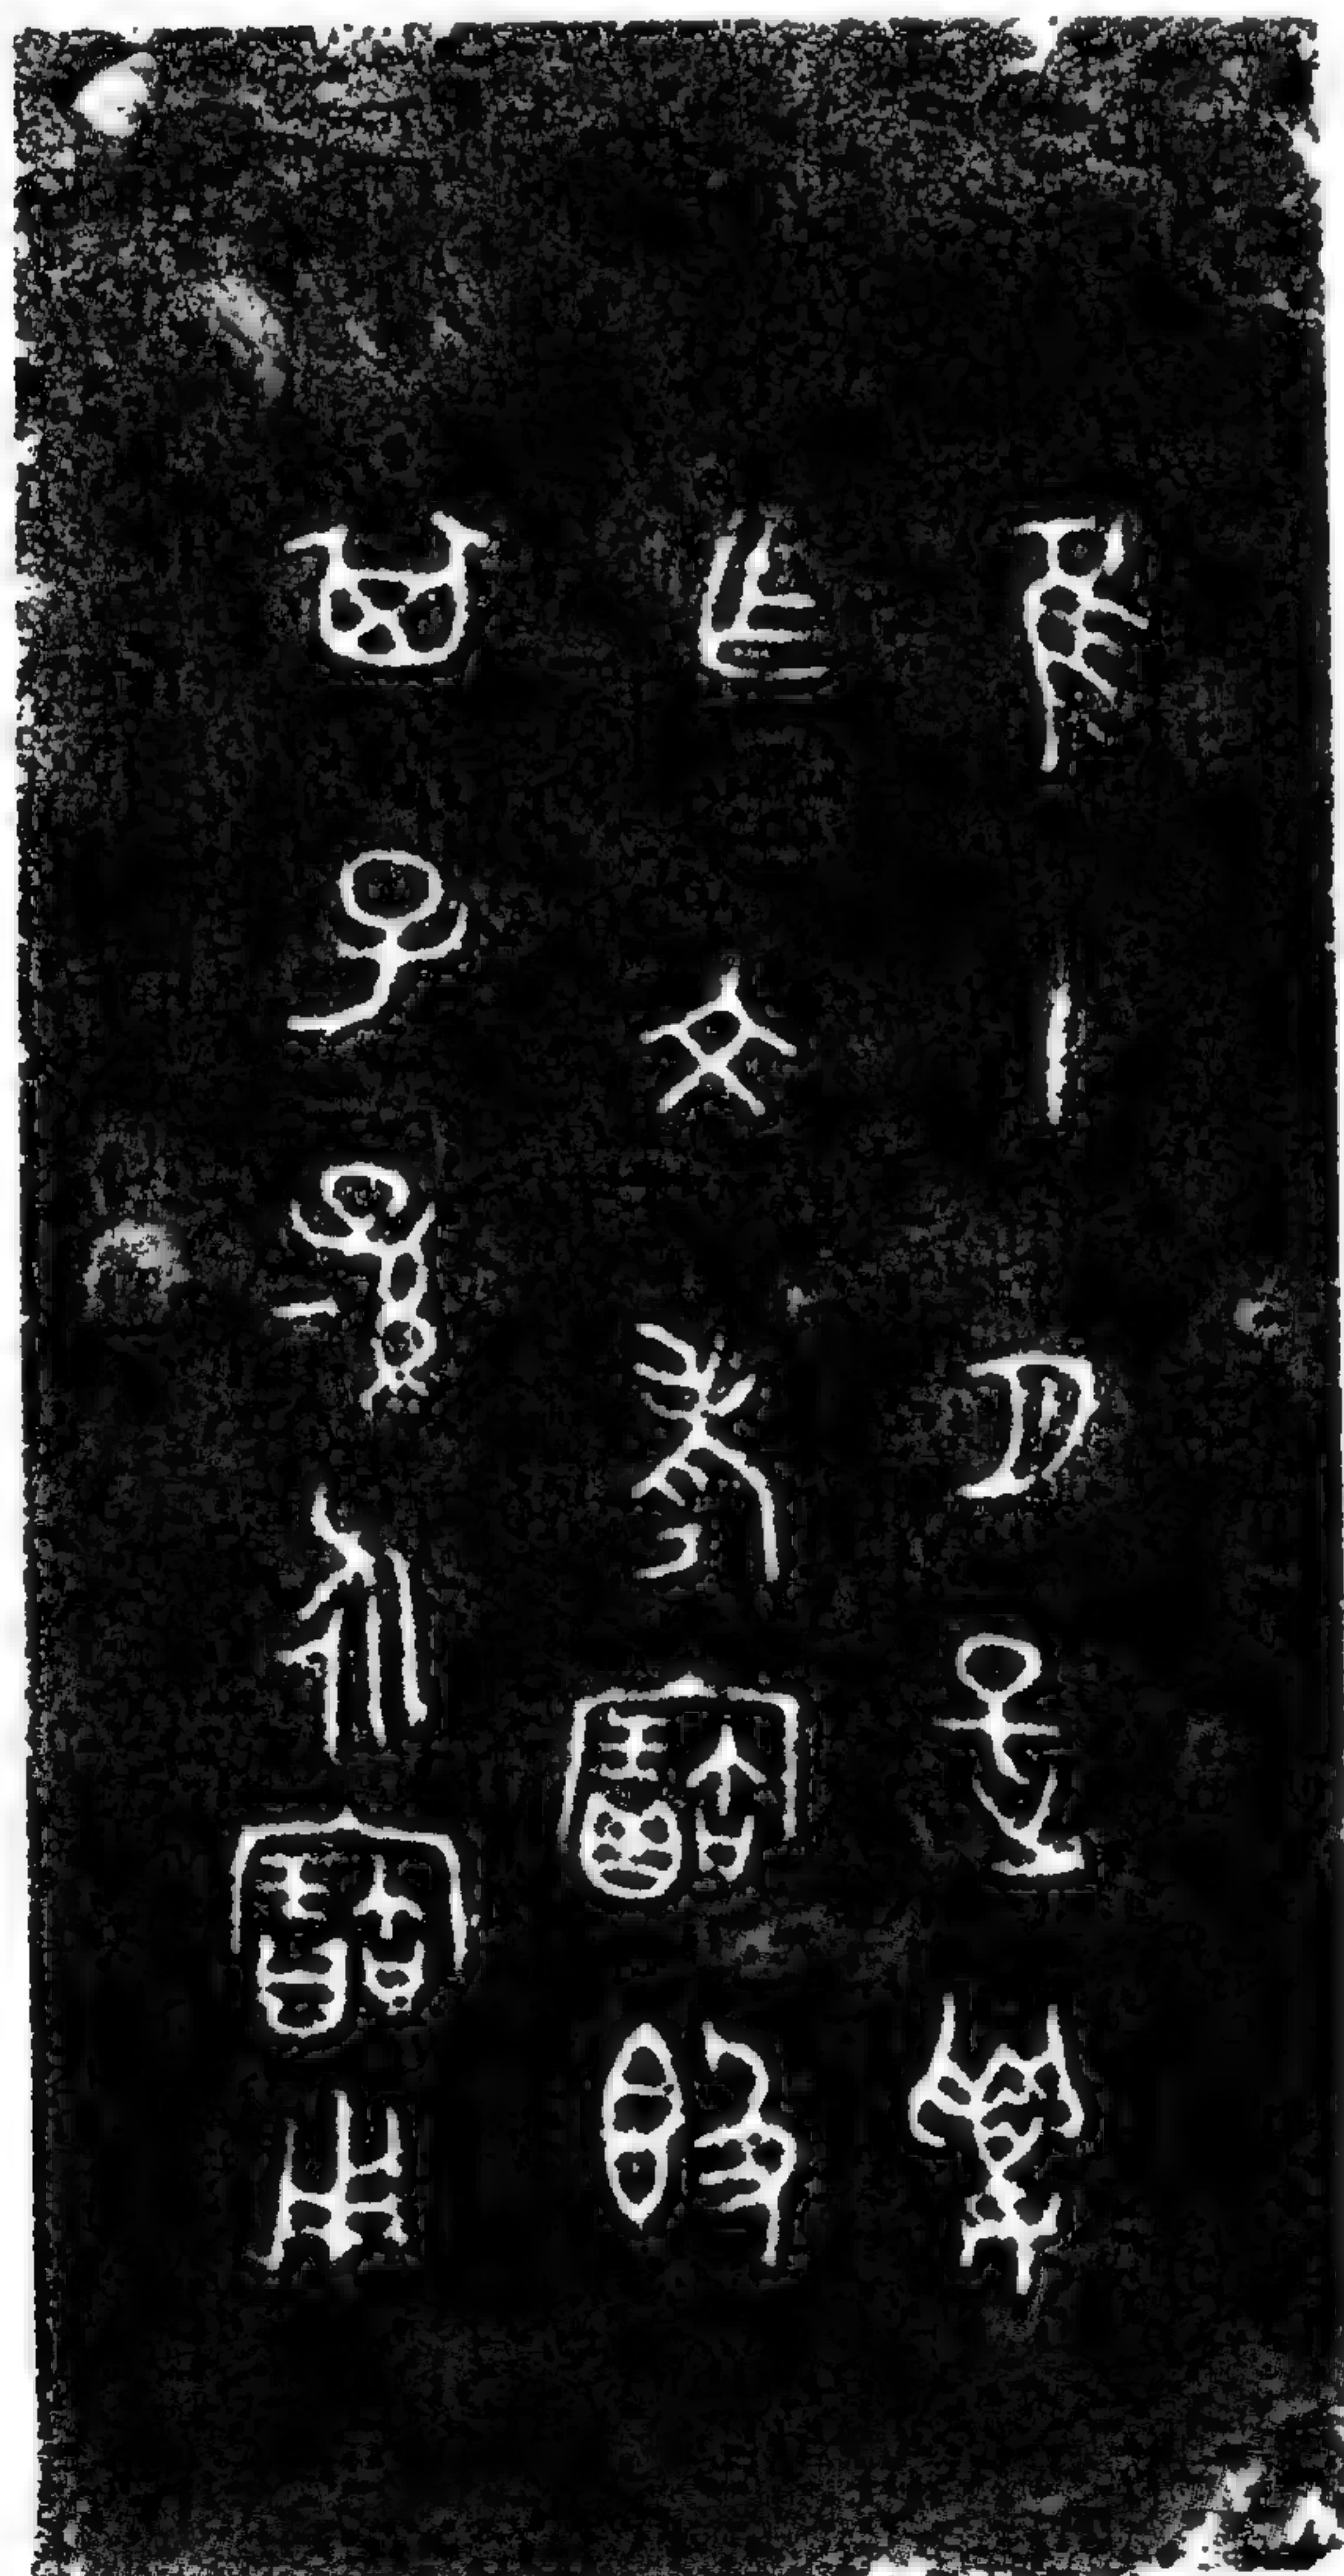 隹十月
乍文考寶
其子孫永寶用